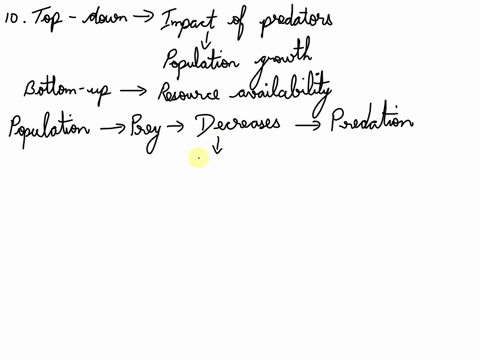 10. Top-down → Impact of predators
↓
Population growth
Bottom-up → Resource availability
Population → Prey → Decreases → Predation
↓